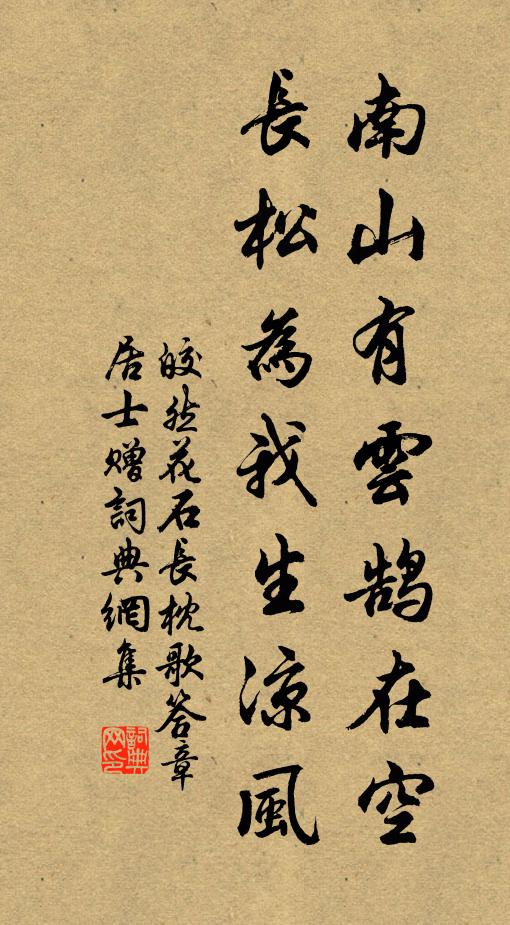 南山有雲鹄在空
長松為我生涼風
皎然花石長枕歌答章
居士赠詞典網集
詞典网印